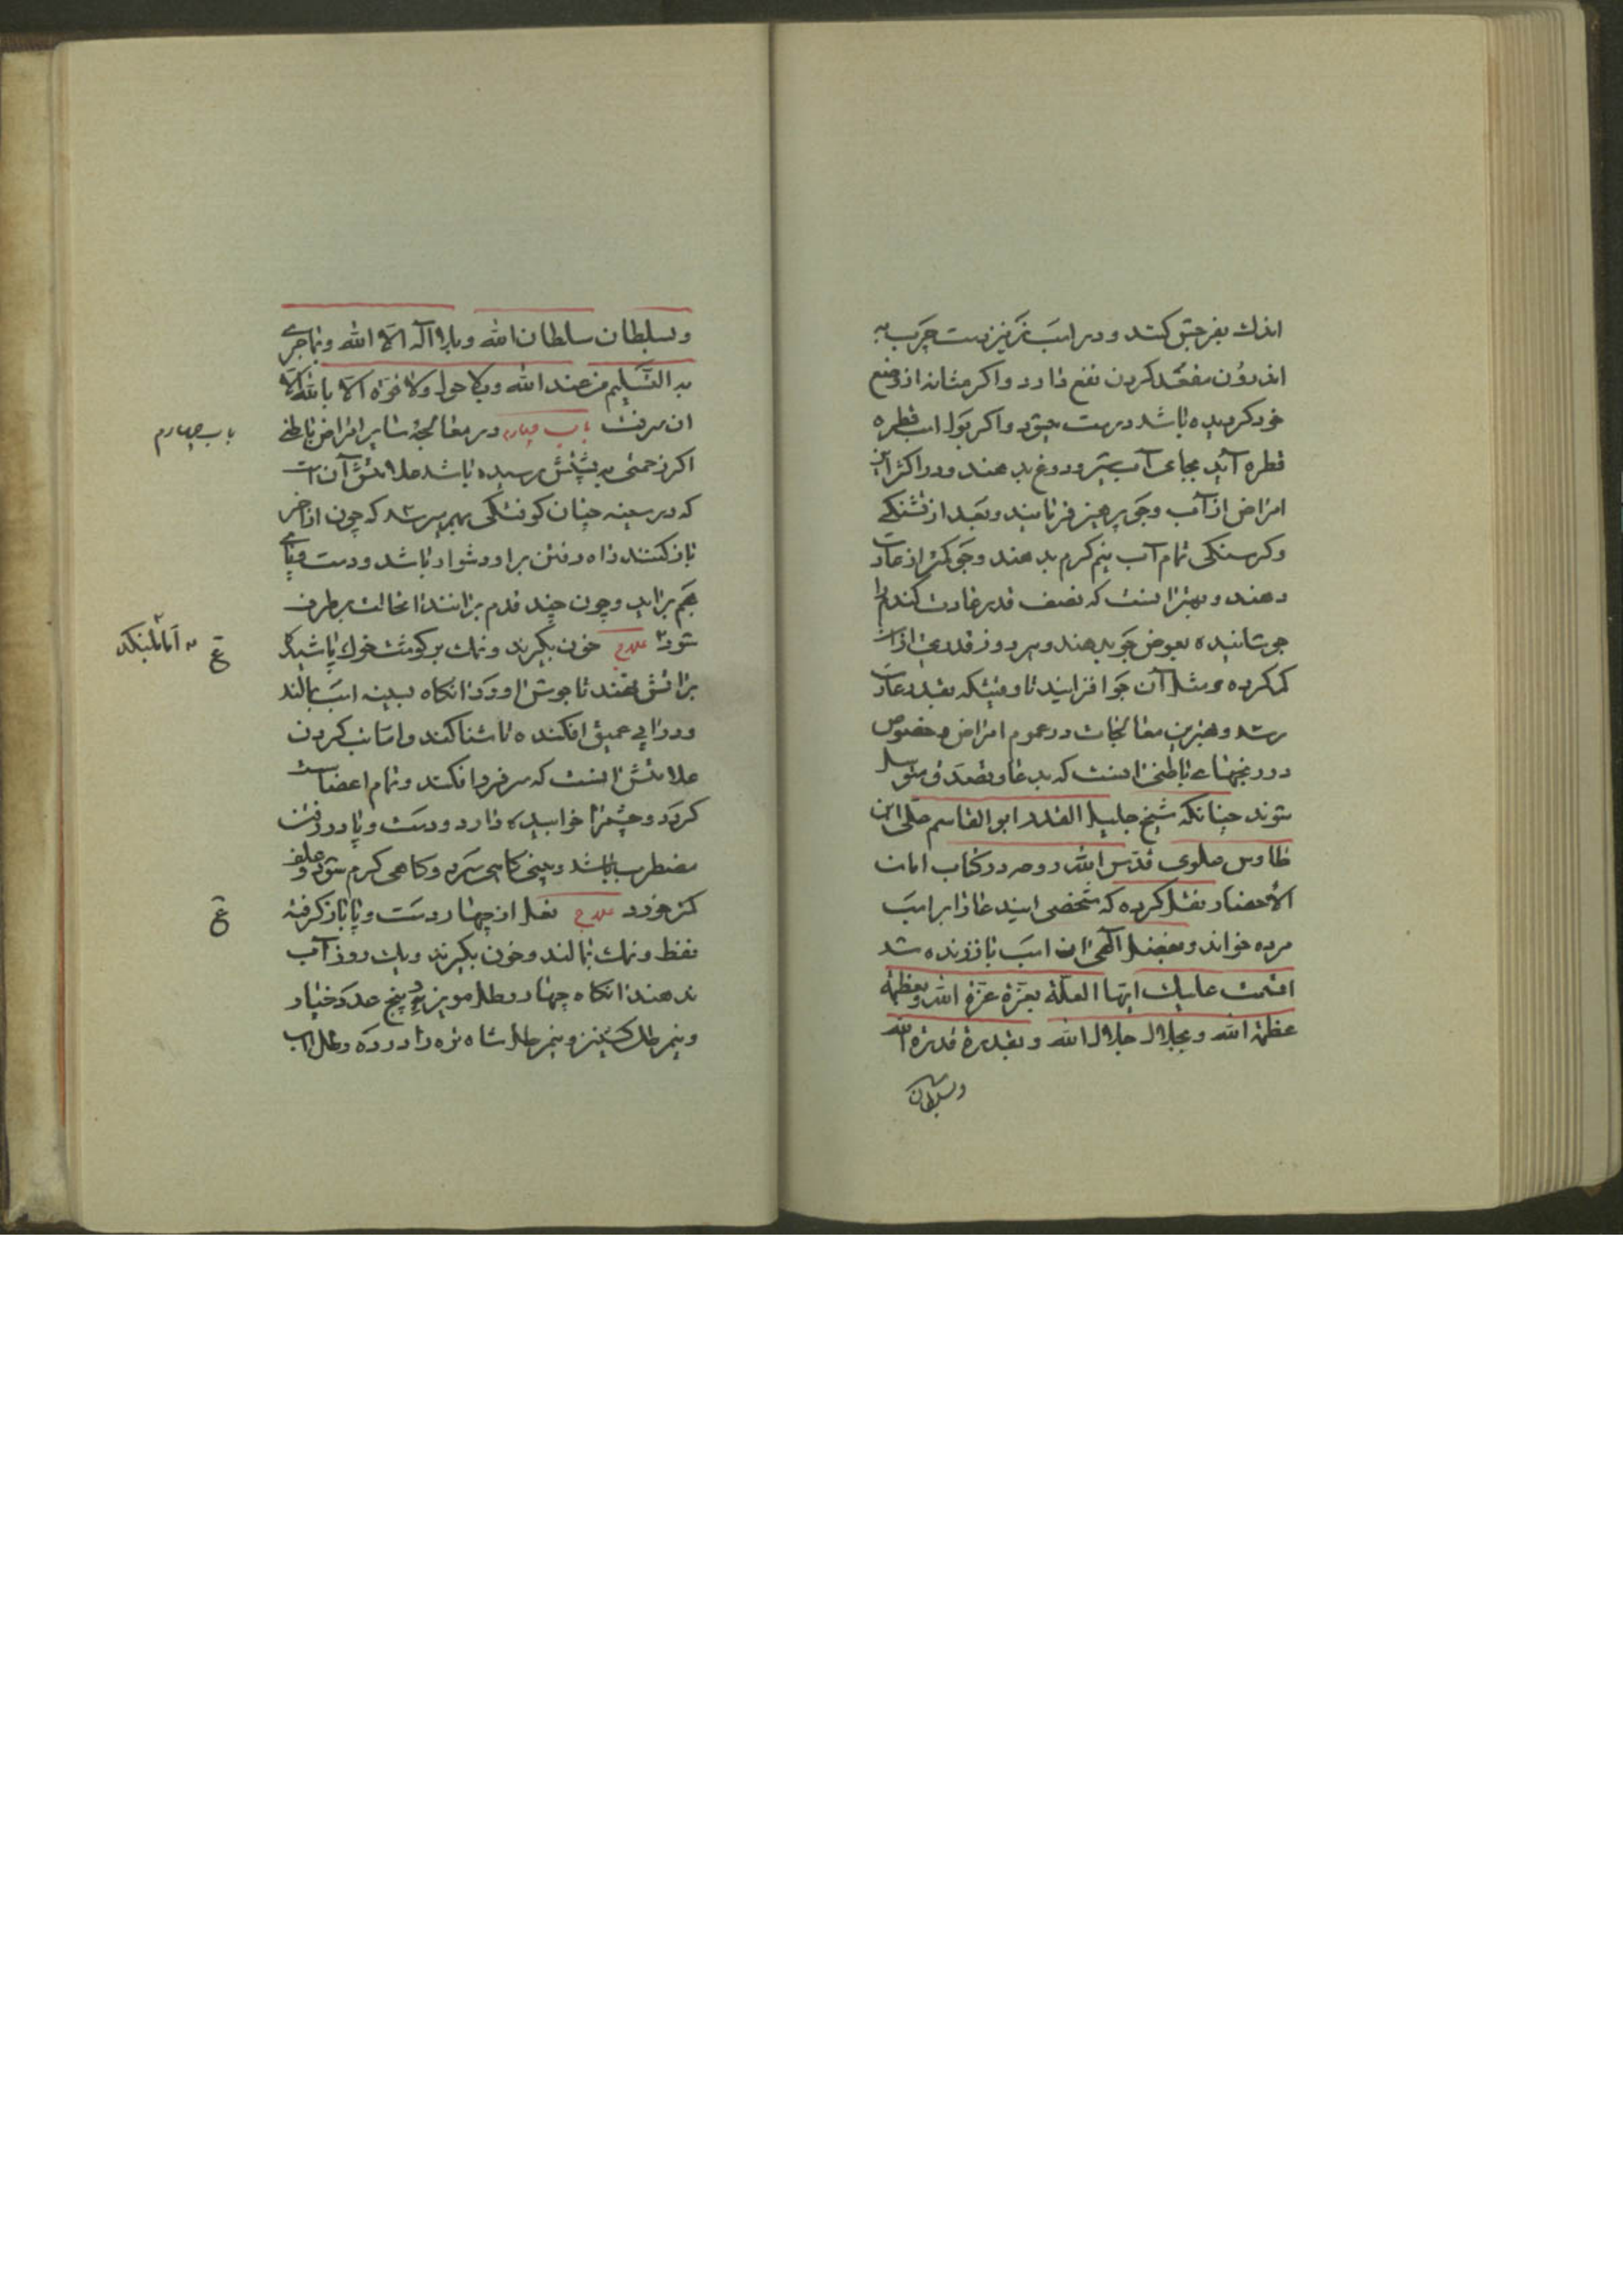 اندك بفرجش كنند و در اسب نر نیز دست چرب به
اندرون مقعد كردن نفع دارد و اكر مثانه از وضع
خود كردیده باشد درست شود و اكر بول اسب قطره
قطره آید بجای آب شیر و دوغ بدهند و در اكثر این
امراض از آب و جو پرهیز فرمایند و بعد از تشنكی
و كرسنكی تمام آب نیم كرم بدهند و جو كمتر از عادت
دهند و بهتر انست كه نصف قدر عادت كندم را
جوشانیده بعوض جو بدهند و هر روز قدری از آن
كم كرده و مثل آن جو افزایند تا وقتیكه بقدر عادت
رسد و بهترین معالجات در عموم امراض و خصوص
در رنجهاء باطنی انست كه بدعا و تصدق متوسل
شوند چنانكه شیخ جلیل القدر ابو القاسم علی ابن
طاوس علوی قدس الله روحه در كتاب امان
الاخطار نقل كرده كه شخصی ایندعا را بر اسب
مرده خواند و بفضل الهی ان اسب باز زنده شد
اقسمت علیك ایتها العلة بعزة عزة الله و بعظمة
عظمة الله و بجلال جلال الله و بقدرة قدرة الله
وبسلطان
وبسلطان سلطان الله وبلا اله الا الله وبما جری
به القلم من عند الله وبلا حول ولا قوة الا بالله الا
انصرفت باب چهارم در معالجهٔ سایر امراض باطنی
باب چهارم
اكر زحمتی به شش رسیده باشد علامتش آن است
كه در سینه چنان كوفتكی بهم رسد كه چون از آخر
باز كنند راه رفتن بر او دشوار باشد و دست و پای
بهم برآید و چون چند قدم برانند انحالت برطرف
شود علاج خون بكیرند و نمك بر كوشت خوك پاشیده
ع
بر اتش نهند تا جوش اورد انكاه بسینه اسب بمالند
و در ابی عمیق افكنده تا شنا كند و اما
علامتش انست كه سر فرو افكند و تمام اعضا سست
كردد و چشم را خوابیده دارد و دست و پا در رفتن
مضطرب باشد و بینی كاهی سرد و كاهی كرم شود و علف
كمتر خورد علاج نعل از چهار دست و پا باز كرفته
ع
نفط و نمك بمالند و خون بكیرند و یك روز آب
ندهند انكاه چهار رطل مویز و پنج عدد خیار
و نیم رطل كشنیز و نیم رطل شاه تره را در ده رطل اب